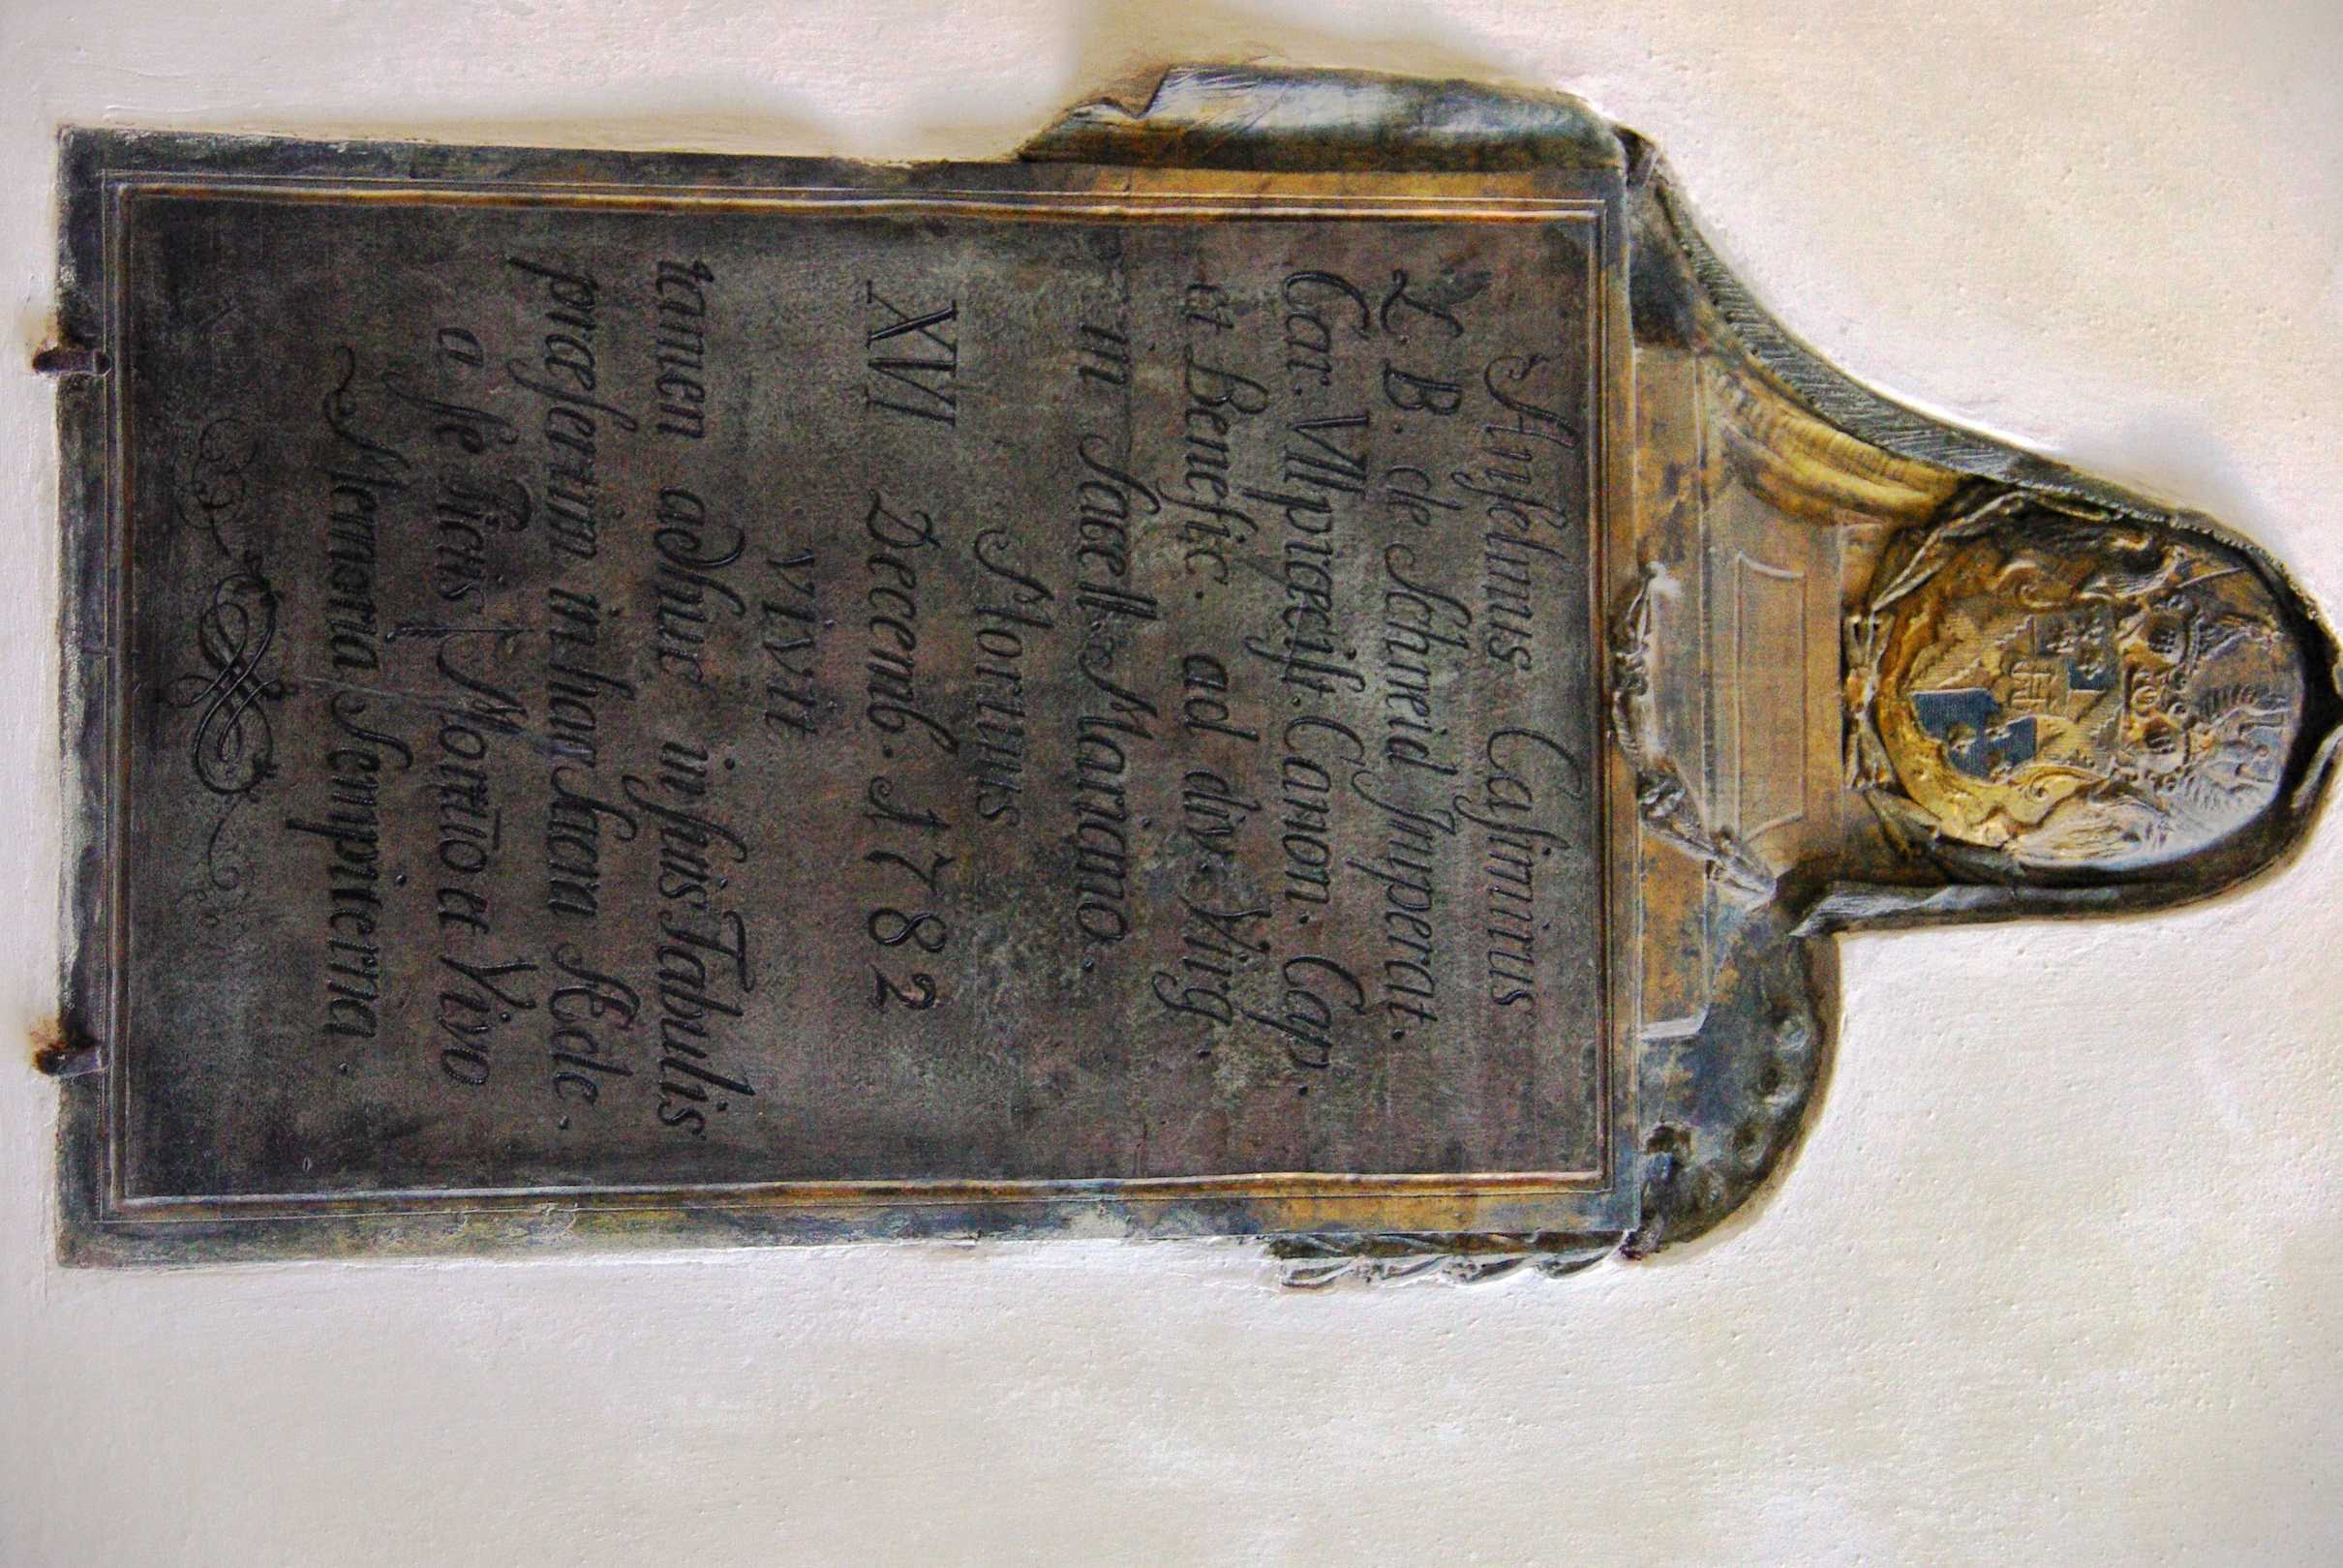 Anſelmus Caſimirus
L. B. de Schneid Inſuperat.
Car. VII praeiſt. Canon. Cap.
et Benefic. ad div. Virg.
in Sacell. Mariano.
Mortuus
XVI Decemb. 1782
vivit
tamen adhuc in ſuis Tabulis
praeſertim in hac Sacra Æde.
a Se Pictis Mortuo et Vivo
Memoria Sempiterna.